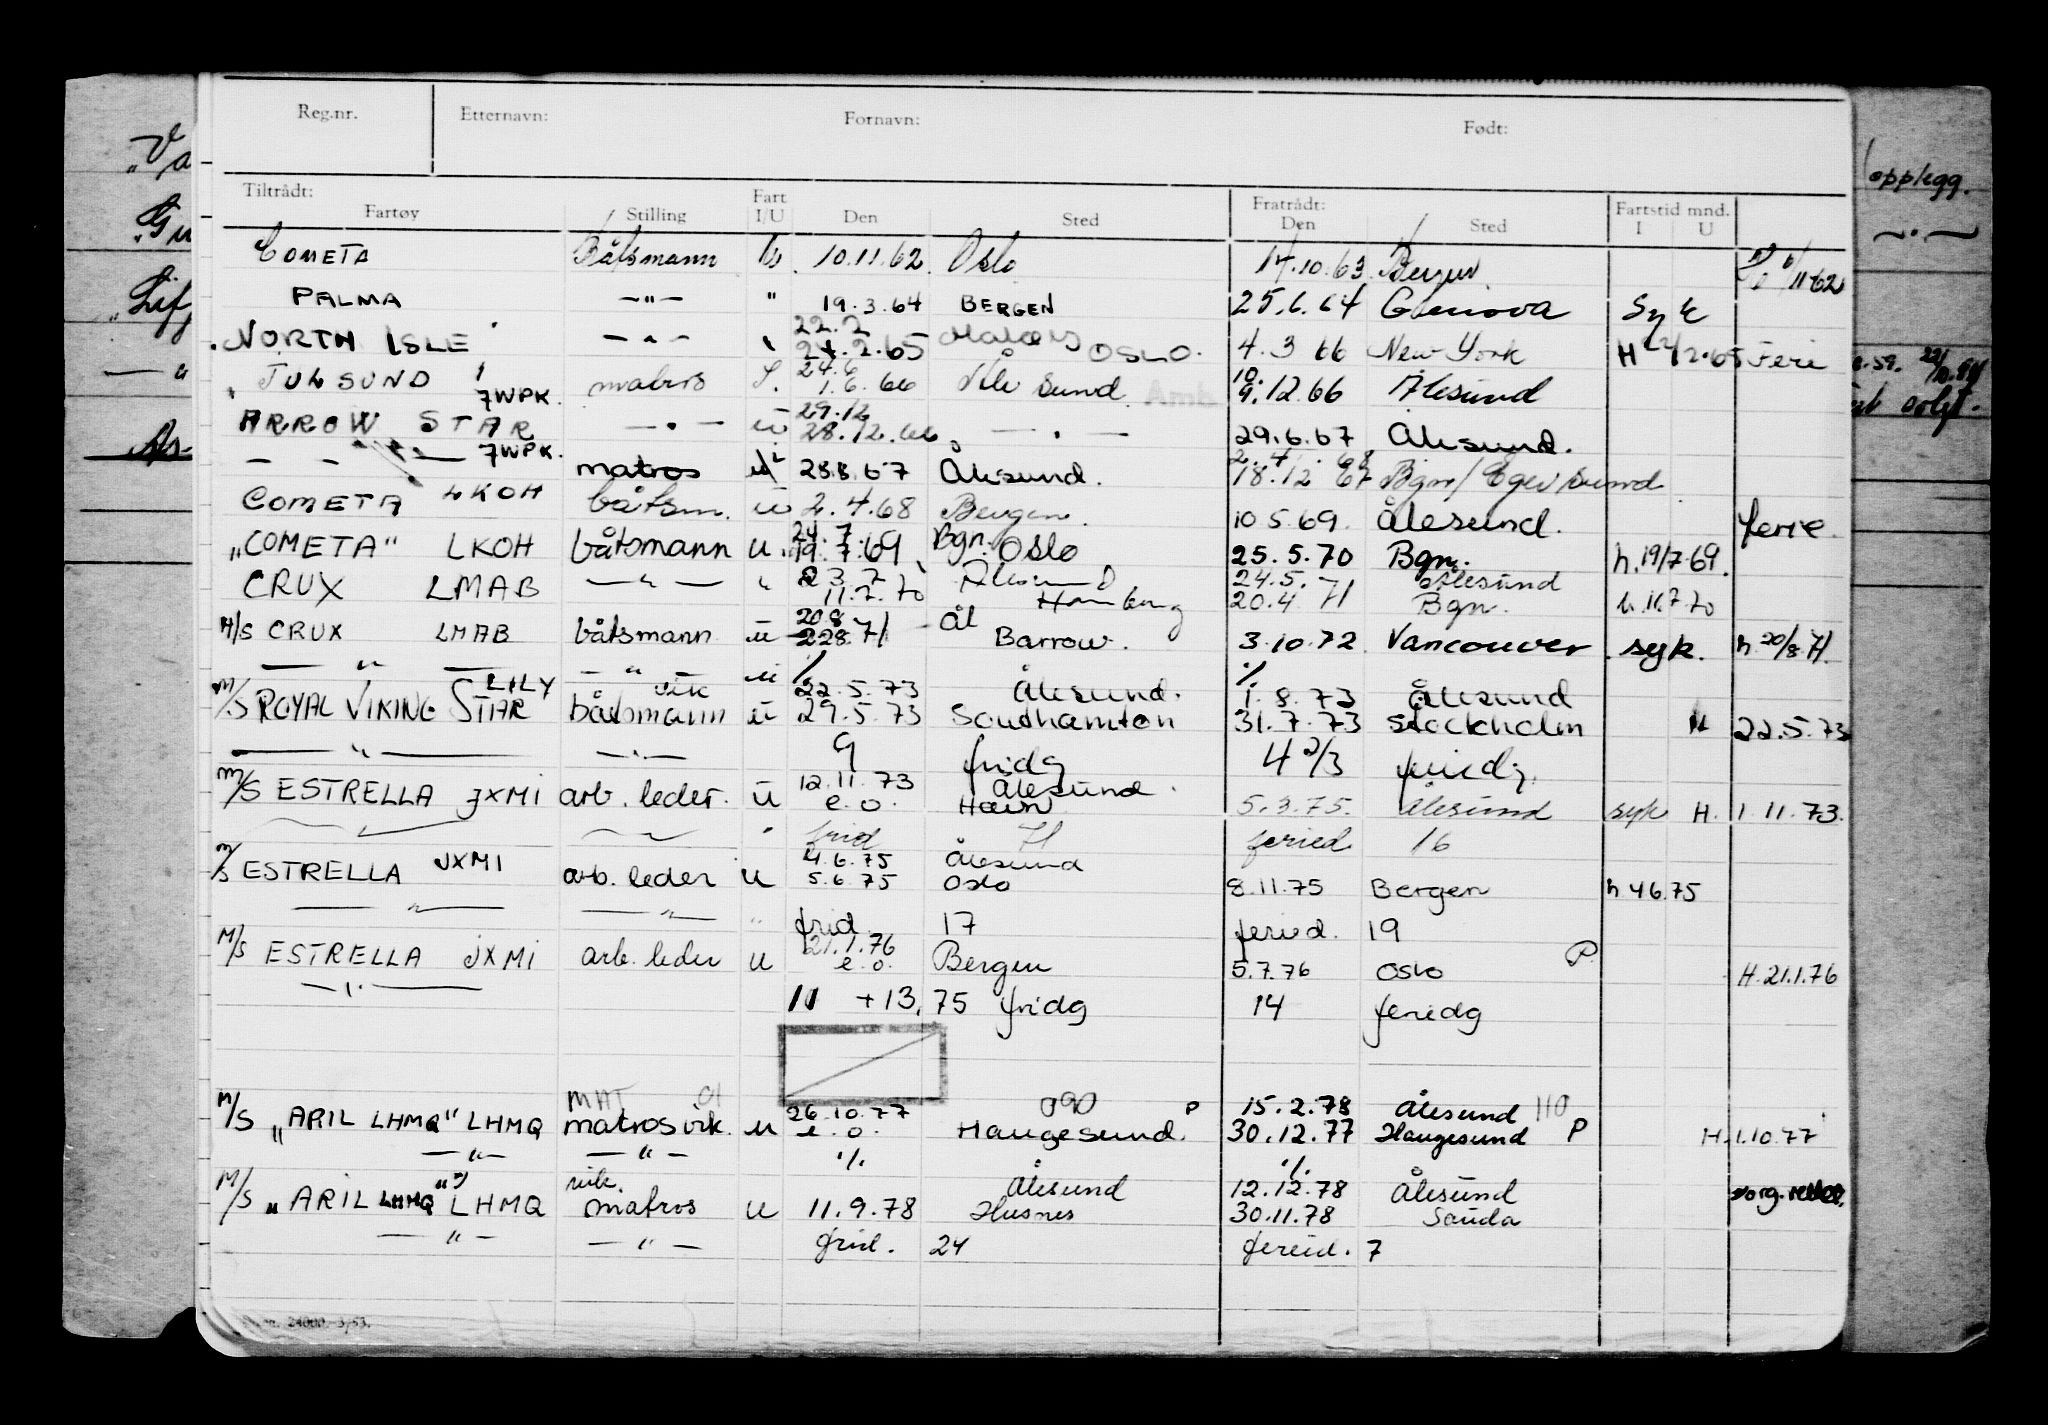 Reg.nr. Etternavn: Fornavn: Født:
Tiltrådt: Fart Fratrådt: Fartstid mnd.
Fartøy Stilling I/U Den Sted Den Sted I U
COMETA Båtsmann 10.11.62 Oslo 14.10.63 Bergen 11-62
PALMA —"— " 19.3.64 BERGEN 25.6.64 Genova Syk
22.2
NORTH ISLE —"— 24.2.65 OSLO. 4.3 66 New York H 22/2-65 Feri
24.6 10.
JULSUND 7WPK. matros 1.6.66 Ålesund 9.12.66 Ålesund
29.12
ARROW STAR —"— u 28.12.66 —"— 29.6.67 Ålesund.
2.4.68
— — — 7WPK. matros 28.8.67 Ålesund. 18.12 67 Bgn/Egersund
COMETA LKOH båtsm. u 2.4.68 Bergen. 10 5.69. Ålesund. ferie.
24.7. Bgn.
"COMETA" LKOH båtsmann u. 19.7.69 Oslo 25.5.70 Bgn. h.19/7-69.
23.7 Ålesund 24.5. Ålesund
CRUX LMAB —"— " 11.7.70 Hamburg 20.4 71 Bgn. h.11.7.70
20.8 Ål
M/S CRUX LMAB båtsmann u 22.8.71 Barrow. 3.10.72 Vancouver syk. h 20/8-71.
— " — — " — u % %
LILY vik 22.5.73 Ålesund. 1.8.73 Ålesund
M/S ROYAL VIKING STAR båtsmann u 29.5.73 Southamton 31.7.73 Stockholm H 22.5.73
— " — —"— 9 fridg 4 2/3 feriedg.
12.11.73 Ålesund.
M/S ESTRELLA JXMI arb. leder. u e.o. Havn 5.3.75. Ålesund syk H. 1.11.73.
frid 71 feried. 16
4.6.75 Ålesund
M/S ESTRELLA JXMI arb. leder u 5.6.75 Oslo 8.11.75 Bergen h 4.6.75
— " — — " — " frid. 17 feried. 19
21.1.76
M/S ESTRELLA JXMI arb. leder u e.o. Bergen 5.7.76 Oslo P. H.21.1.76
—"— 11 +13,75 fridg 14 feriedg
MAT 01 26.10.77 090 P 15.2.78 Ålesund 110
M/S "ARIL LHMQ" LHMQ matros vik. u e.o. Haugesund. 30.12.77 Haugesund P H.1.10.77
—"— —"— % %
vik. Ålesund 12.12.78 Ålesund
M/S "ARIL LHMQ" LHMQ matros u 11.9.78 Husnes 30.11.78 Sauda
—"— —"— frid. 24 fereid. 7
24000. 3/53.
opplegg.
solgt.